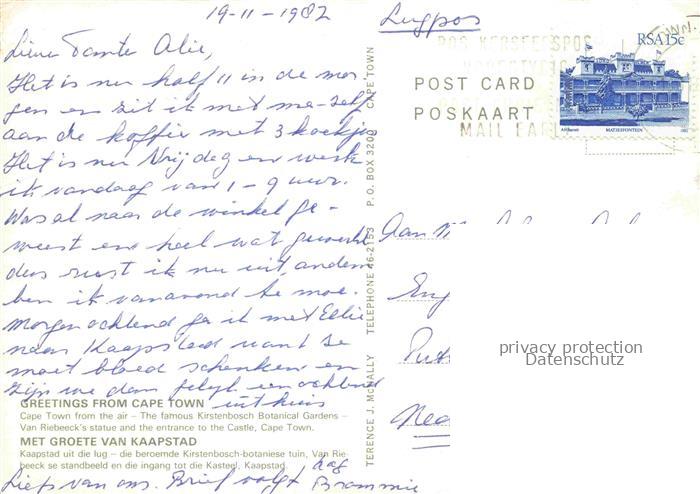 19-11-1982
Lugpos
Lieve Tante Alie,
Het is nu half 11 in de mor-
gen en zit ik met me-self
aan de koffie met 3 koekjes
Het is nu Vrijdag en werk
ik vandaag van 1-9 uur.
Was al naar de winkel ge-
weest en heel wat gewerkt
dus rust ik nu uit, anders
ben ik vanavond te moe.
Morgenochtend ga ik met Ellie
naar Kaapstad want ze
moet bloed schenken en
zijn we dan gelijk een ochtend
uit huis
Liefs van ons. Brief volgt
POST CARD
POSKAART
RSA 15c
MATJESFONTEIN
MAIL EARLY
Aan
privacy protection
Datenschutz
TERENCE J. McNALLY TELEPHONE 46-2153 P.O. BOX 3200 CAPE TOWN
GREETINGS FROM CAPE TOWN
Cape Town from the air – The famous Kirstenbosch Botanical Gardens –
Van Riebeeck's statue and the entrance to the Castle, Cape Town.
MET GROETE VAN KAAPSTAD
Kaapstad uit die lug – die beroemde Kirstenbosch-botaniese tuin, Van Rie-
beeck se standbeeld en die ingang tot die Kasteel, Kaapstad.